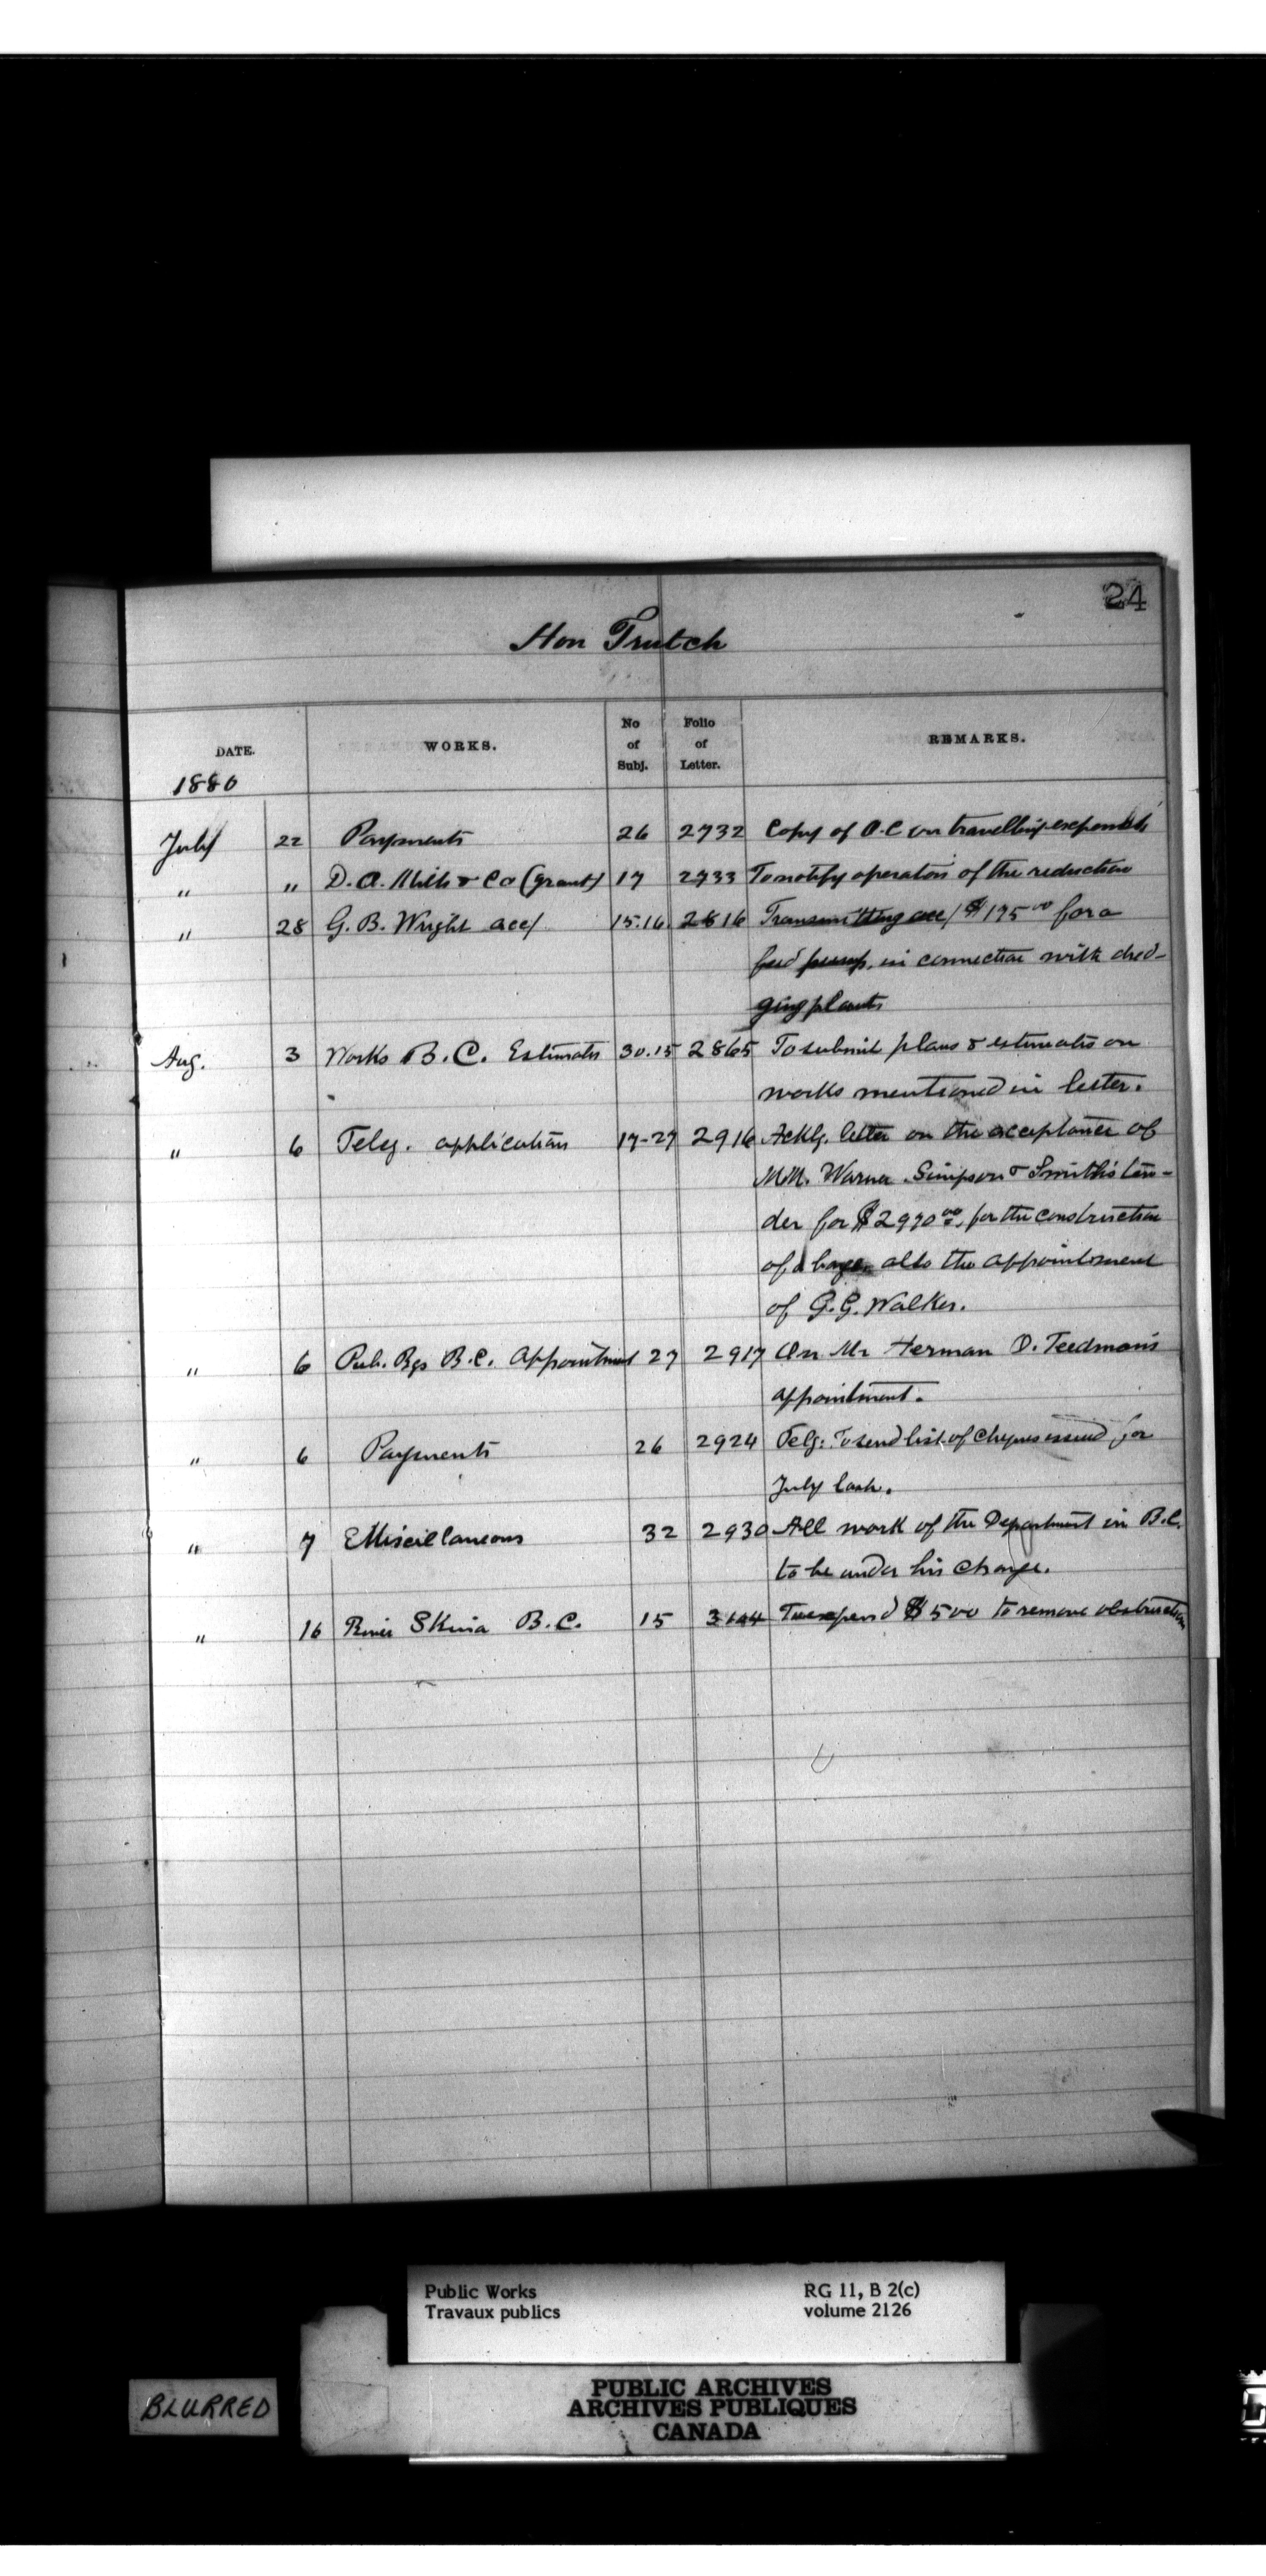 24
Hon Trutch
DATE. WORKS. No of Subj. Folio of Letter. REMARKS.
1880
July 22 Payments 26 2732 Copy of O.C on travelling expenses
" " D. O. Mills & Co (grant) 17 2733 To notify operators of the reduction
" 28 G. B. Wright acc/ 15.16. 2816 Transmitting acc/ $175 00 for a
feed pump, in connection with dred-
ging plants
Aug. 3 Works B.C. Estimates 30.15 2865 To submit plans & estimates on
works mentioned in letter.
" 6 Teleg. application 17-27 2916 Ackg. letter on the acceptance of
M.M. Warner Simpson & Smith's ten-
der for $2970 00, for the construction
of a barge also the appointment
of G.G. Walker.
" 6 Pub. Bgs B.C. Appointment 27 2917 On Mr Herman O. Teedman's
appointment.
" 6 Payments 26 2924 Telg: To send list of cheques issued for
July last.
" 7 Miscellaneous 32 2930 All work of the Department in B.C.
to be under his charge.
" 16 River Skina B.C. 15 3144 To expend $500 to remove obstruction
Public Works RG 11, B 2(c)
Travaux publics volume 2126
BLURRED
PUBLIC ARCHIVES
ARCHIVES PUBLIQUES
CANADA